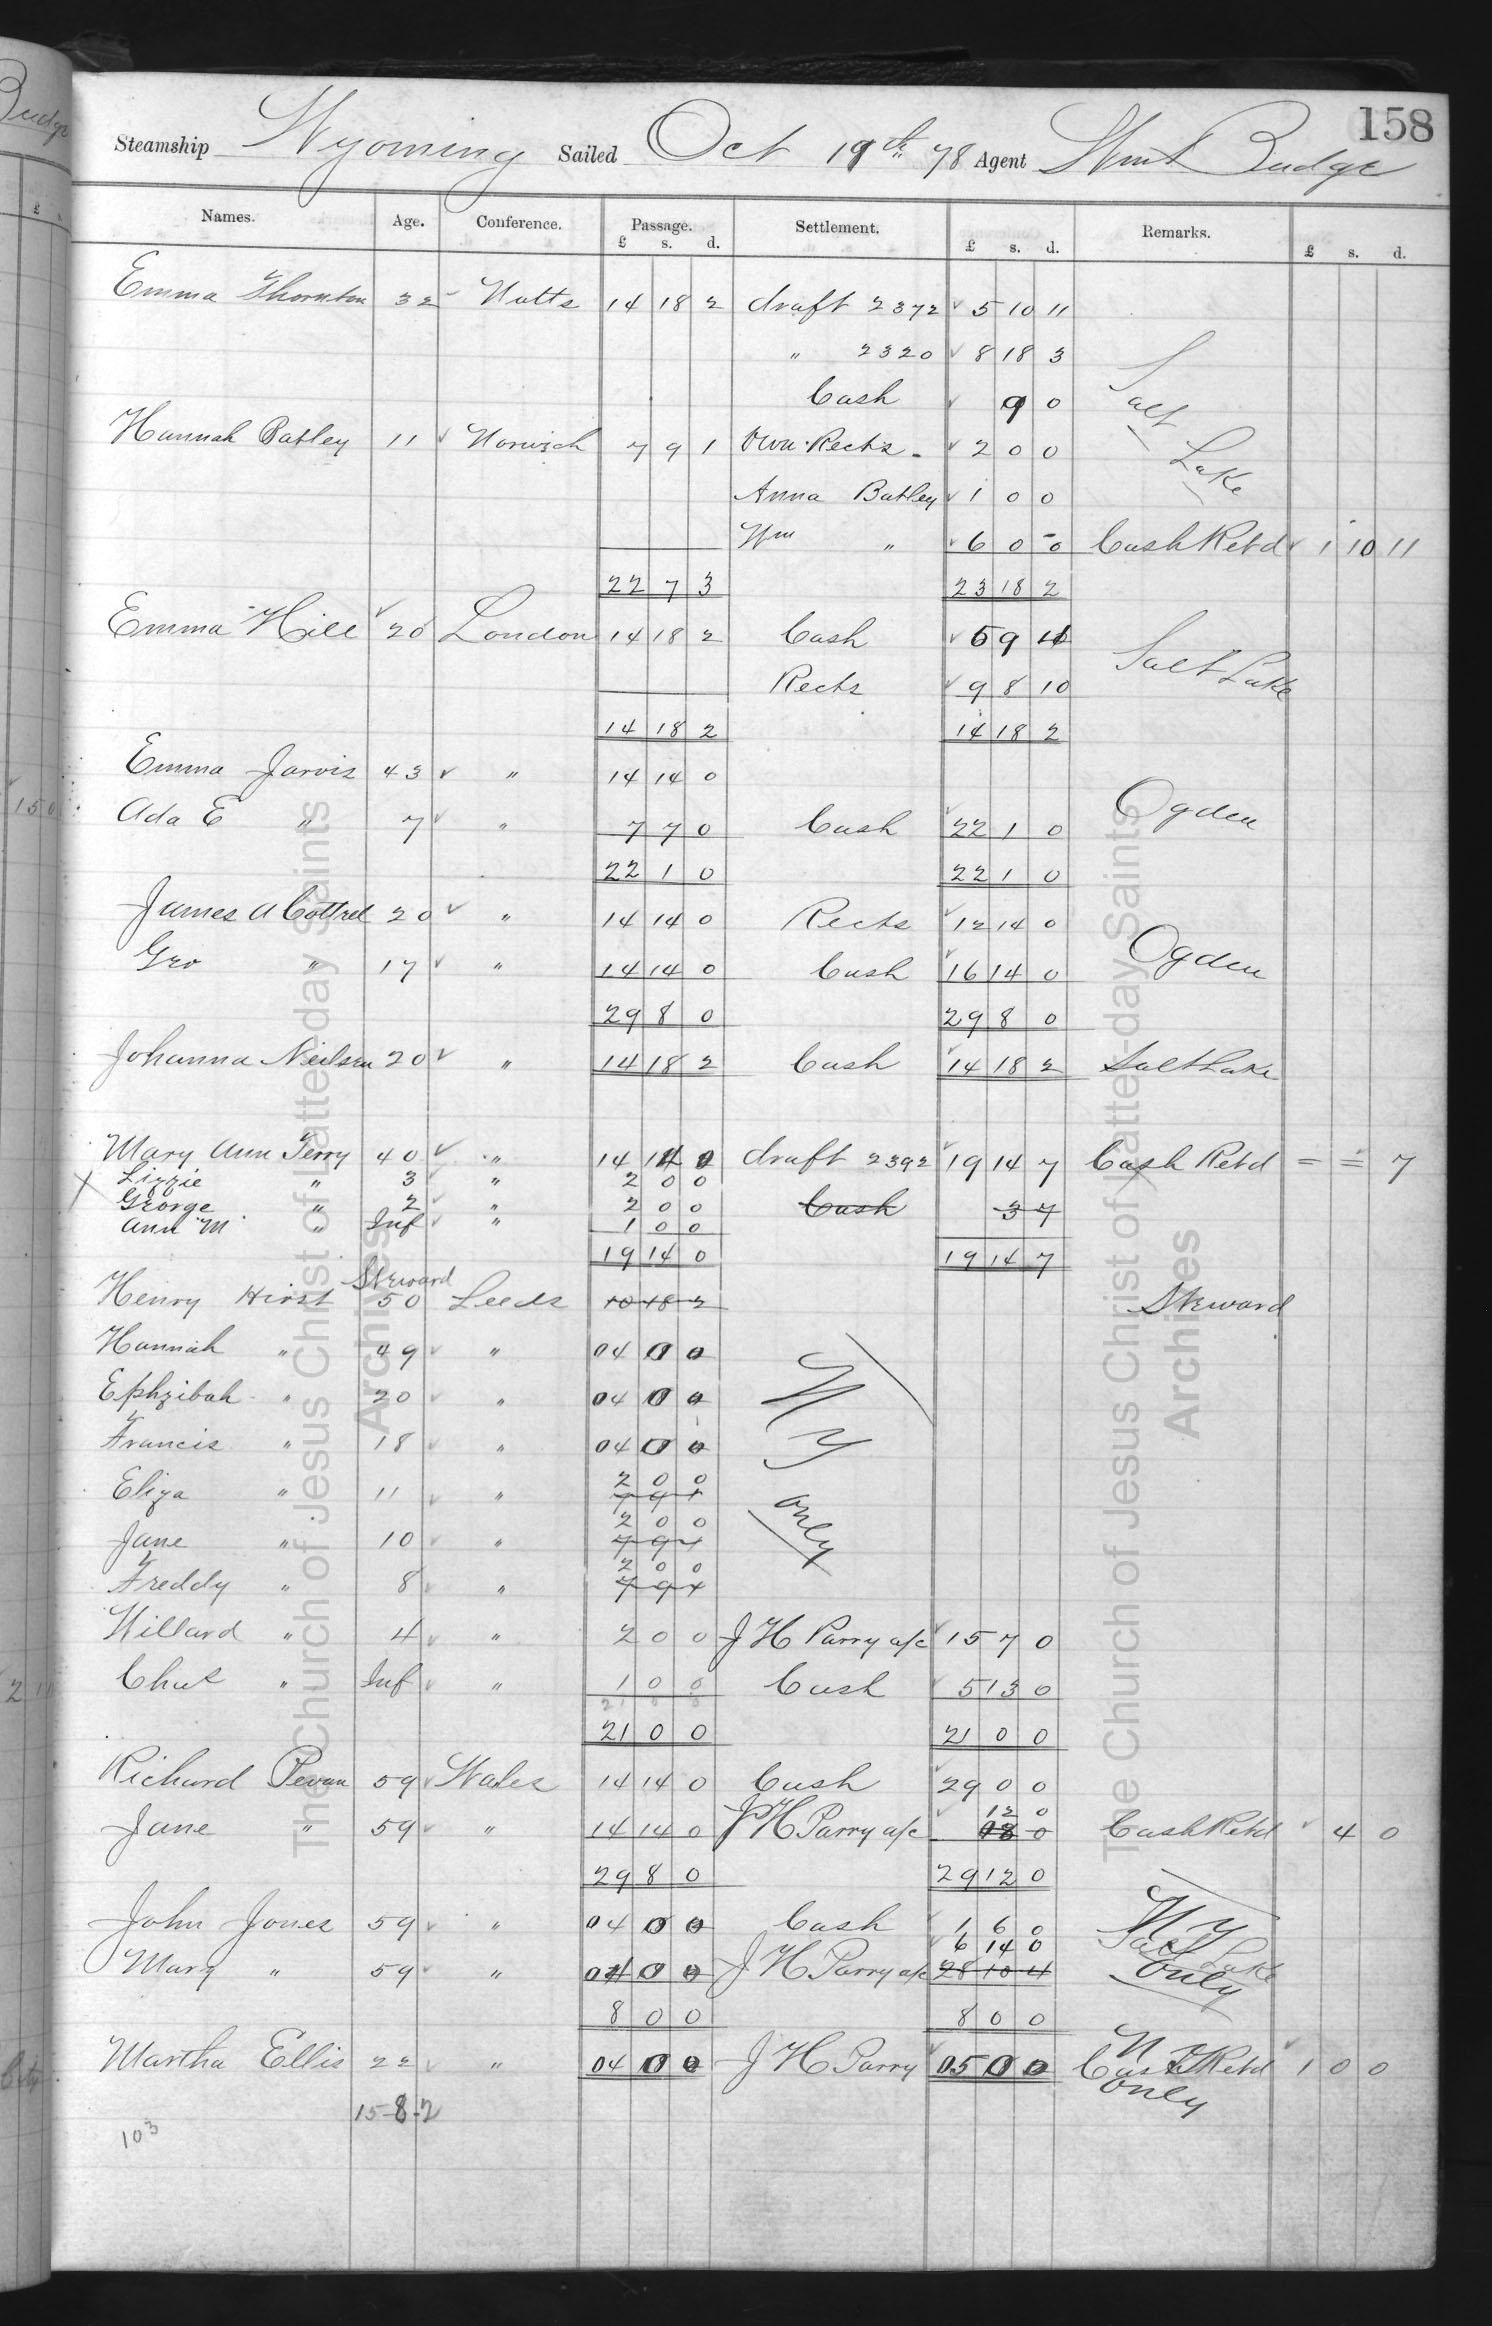 158
Steamship Wyoming Sailed Oct 19th 78 Agent Wm Budge
Names. Age. Conference. Passage. Settlement. Remarks.
£ s. d. £ s. d. £ s. d.
Emma Thornton 32 Notts 14 18 2 draft 2372 5 10 11
" 2320 8 18 3 Salt
Cash 9 0
Hannah Batley 11 Norwich 7 9 1 Own Rects 2 0 0 Lake
Anna Batley 1 0 0
Wm " 6 0 0 Cash Retd 1 10 11
22 7 3 23 18 2
Emma Hill 20 London 14 18 2 Cash 5 9 4 Salt Lake
Rects 9 8 10
14 18 2 14 18 2
Emma Jarvis 43 " 14 14 0
Ada E " 7 " 7 7 0 Cash 22 1 0 Ogden
22 1 0 22 1 0
James A Cottrel 20 " 14 14 0 Rects 12 14 0
Geo " 17 " 14 14 0 Cash 16 14 0 Ogden
29 8 0 29 8 0
Johanna Neilsen 20 " 14 18 2 Cash 14 18 2 Salt Lake
Mary Ann Terry 40 " 14 14 0 draft 2392 19 14 7 Cash Retd = = 7
X Lizzie " 3 " 2 0 0
George " 2 " 2 0 0 Cash 3 7
Ann M " Inf " 1 0 0
19 14 0 19 14 7
Steward
Henry Hirst 50 Leeds 10 18 2 Steward
Hannah " 49 " 04 0 0
Ephzibah " 20 " 04 0 0 N Y
Francis " 18 " 04 0 0
2 0 0
Eliza " 11 " 7 9 1 only
2 0 0
Jane " 10 " 7 9 1
2 0 0
Freddy " 8 " 7 9 1
Willard " 4 " 2 0 0 J H Parry a/c 15 7 0
Chas " Inf " 1 0 0 Cash 5 13 0
21 0 0 21 0 0
Richard Pevan 59 Wales 14 14 0 Cash 29 0 0
12 0
Jane " 59 " 14 14 0 J H Parry a/c 18 0 Cash Retd 4 0
29 8 0 29 12 0
John Jones 59 " 04 0 0 Cash 1 6 0 N Y
6 14 0 Salt Lake
Mary " 59 " 04 0 0 J H Parry a/c 28 10 4 only
8 0 0 8 0 0
Martha Ellis 22 " 04 0 0 J H Parry 05 0 0 N Y Cash Retd 1 0 0
only
15-8-2
103
The Church of Jesus Christ of Latter-day Saints
Archives
The Church of Jesus Christ of Latter-day Saints
Archives